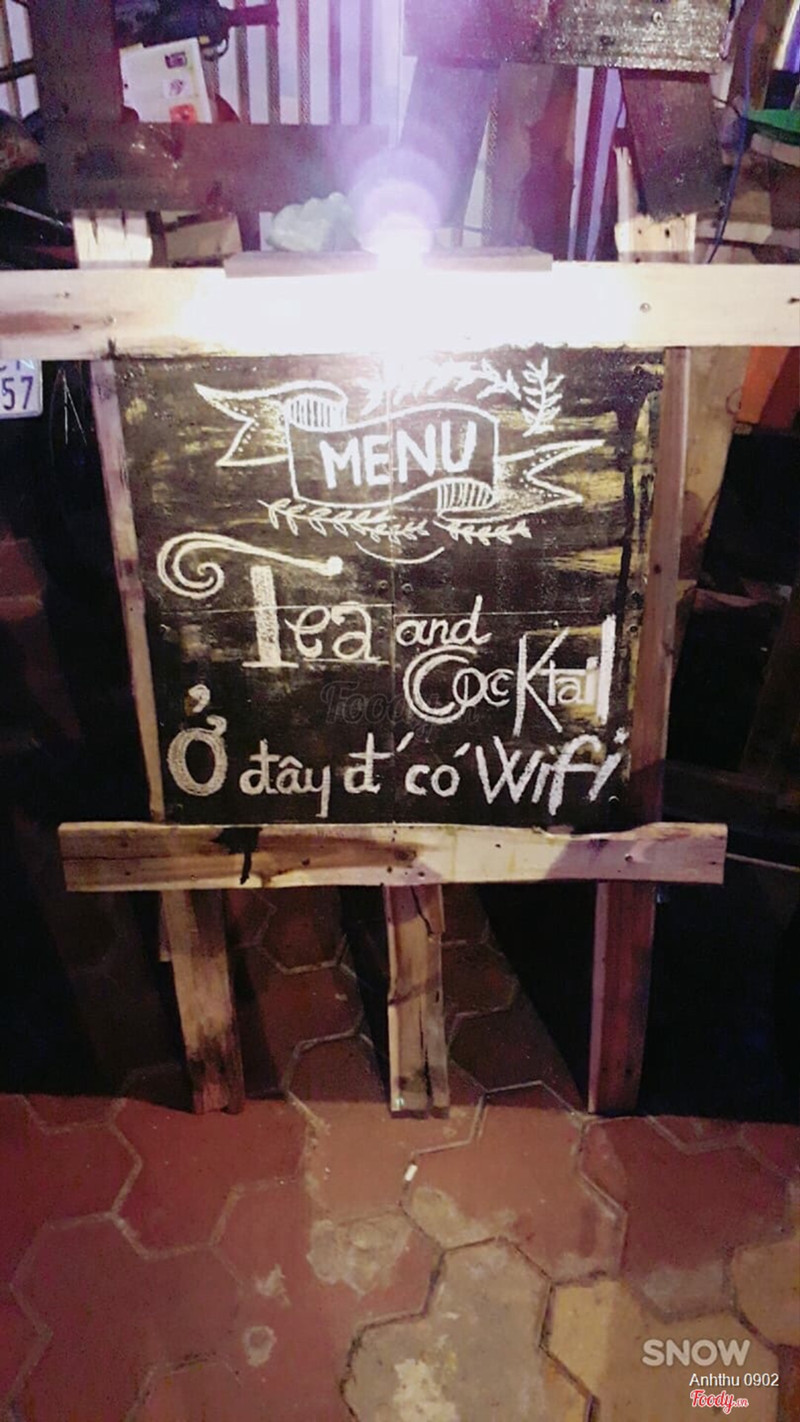 57
MENU
Tea and
Cocktail
Ở đây đ' có Wifi
Foody.vn
SNOW
Anhthu 0902
Foody.vn